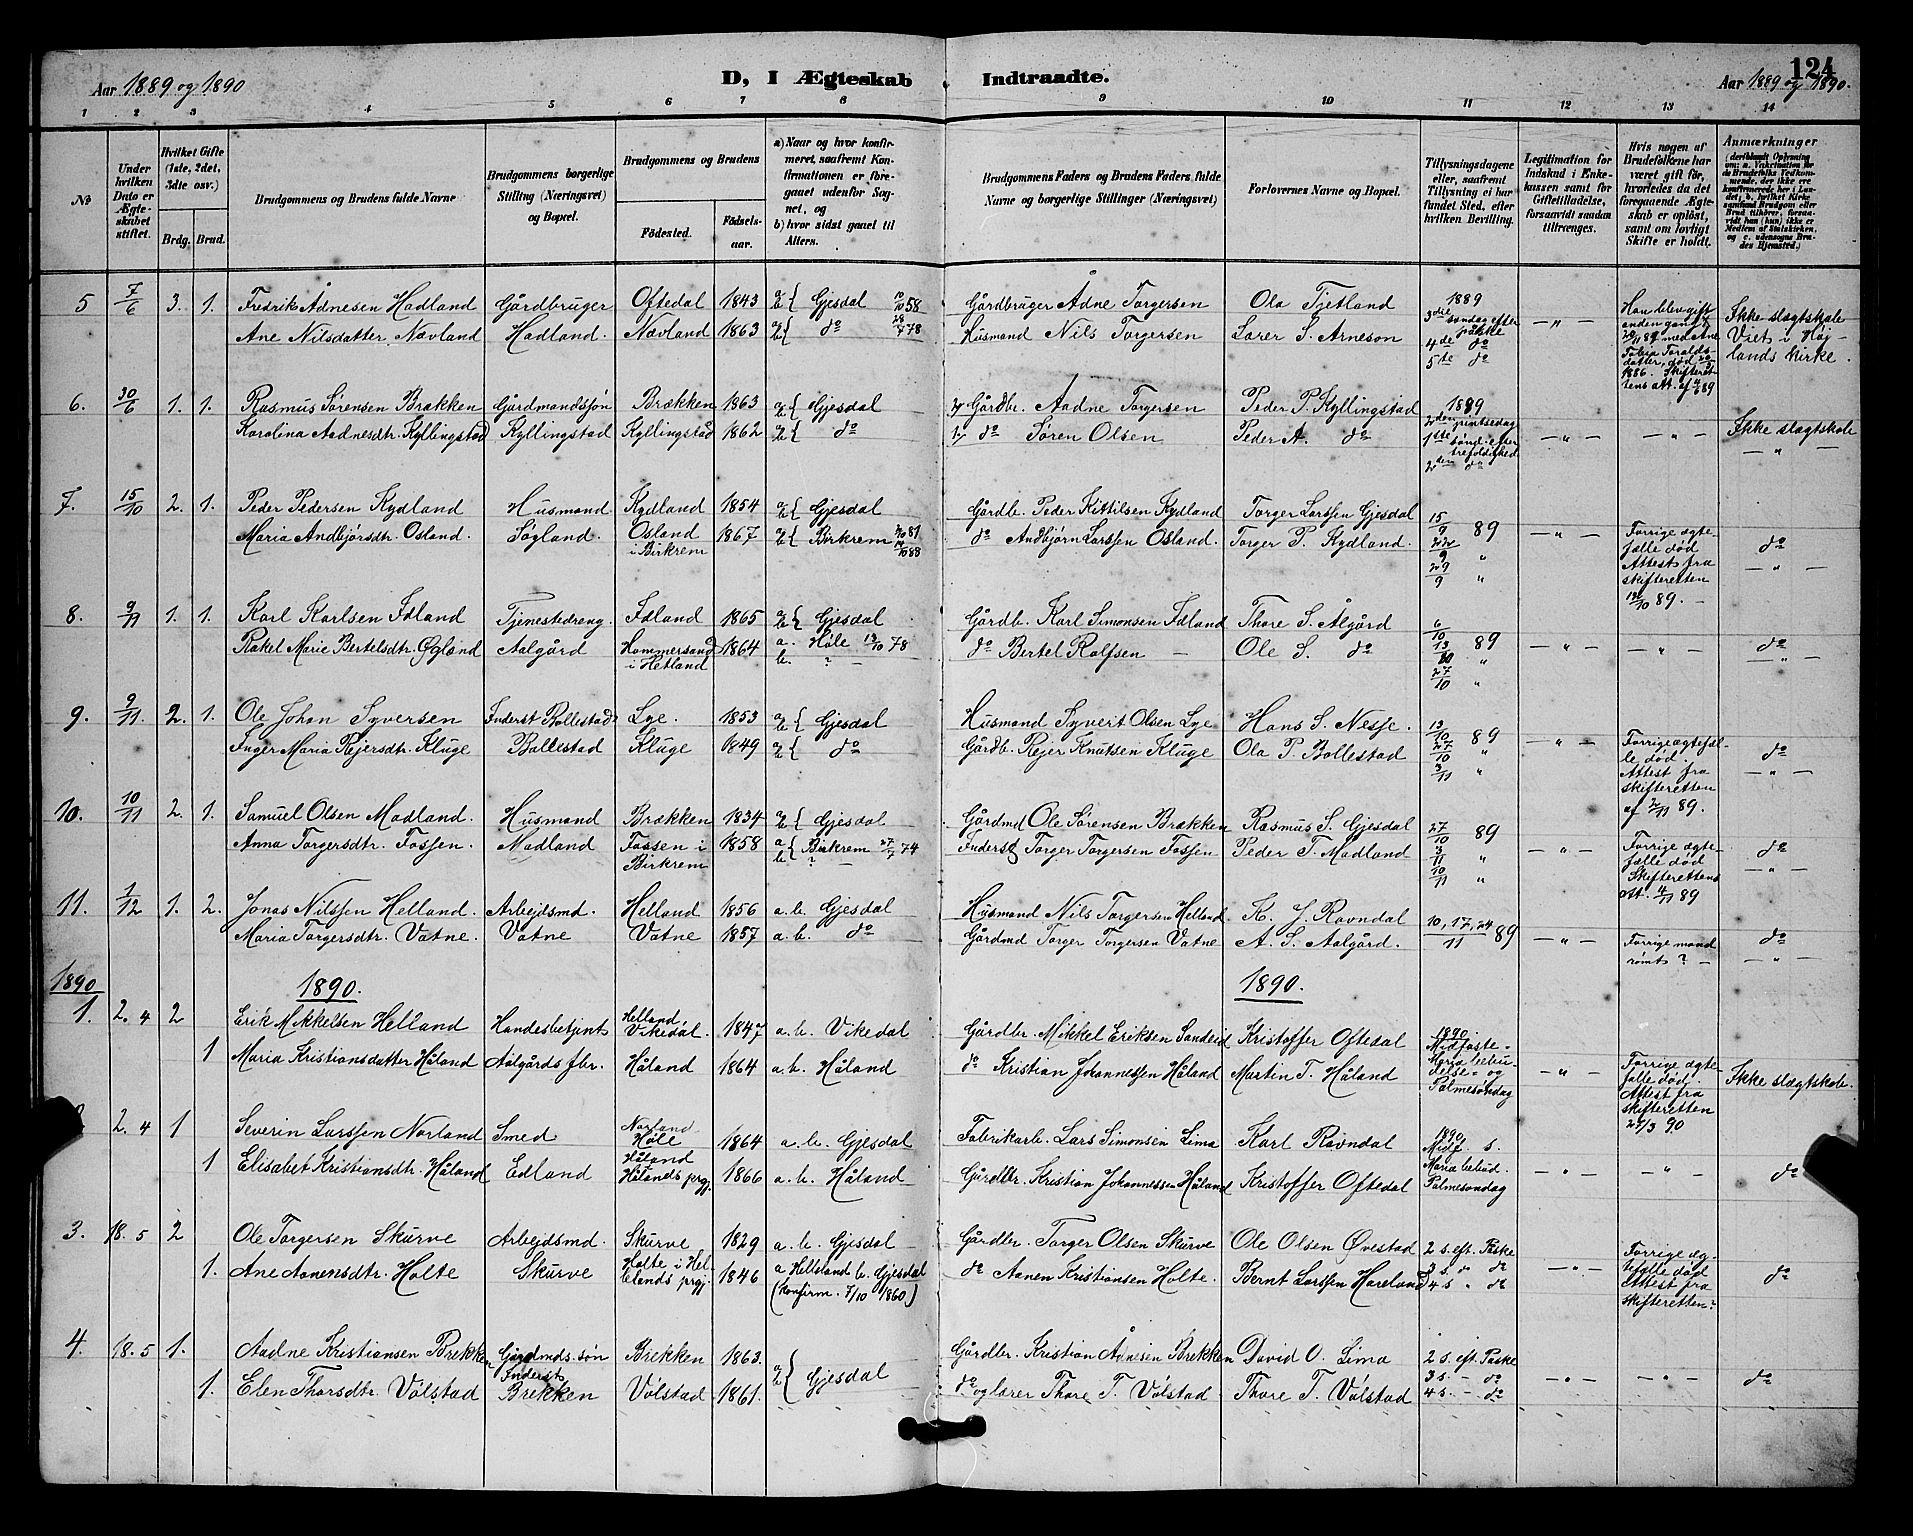 124
Aar 1889 og 1890
D, I Ægteskab Indtraadte.
Aar 1889 og 1890.
1 2 3 4 5 6 7 8 9 10 11 12 13 14
№
Under hvilken Dato er Ægteskabet stiftet.
Hvilket Gifte (1ste, 2det, 3die osv.)
Brdg. Brud.
Brudgommens og Brudens fulde Navne
Brudgommens borgerlige Stilling (Næringsvei) og Bopæl.
Brudgommens og Brudens
Fødested. Fødselsaar.
a) Naar og hvor konfirmeret, saafremt Konfirmationen er foregaaet udenfor Sognet, og
b) hvor sidst gaaet til Alters.
Brudgommens Faders og Brudens Faders fulde Navne og borgerlige Stillinger (Næringsvei)
Forlovernes Navne og Bopæl.
Tillysningsdagene eller, saafremt Tillysning ei har fundet Sted, efter hvilken Bevilling.
Legitimation for Indskud i Enkekassen samt for Giftetilladelse, forsaavidt saadan tiltrænges.
Hvis nogen af Brudefolkene har været gift før, hvorledes da det foregaaende Ægteskab er opløst, samt om lovligt Skifte er holdt.
Anmærkninger
5 7/6 3. 1. Fredrik Ådnesen Hadland Gårdbruger Oftedal 1843 a b { Gjesdal 58 Gårdbruger Ådne Torgersen Ola Tjetland 1889 3die søndag efter påske — „ — Ikke slægtskab
Ane Nilsdatter Navland Hadland. Navland 1863 a b { do 78 Husmand Nils Torgersen Lærer S. Arneson 4de do 5te do Viet i Høilands kirke.
6. 30/6 1. 1. Rasmus Sørensen Brækken Gårdmandssøn Brækken 1863 a b { Gjesdal Gårdb. Aadne Torgersen Peder P. Kyllingstad 1889 2den pintsedag — „ — — „ — Ikke slægtskab
Karolina Aadnesdtr. Kyllingstad Kyllingstad Kyllingstad 1862 a b { do do Søren Olsen Peder A. do 1ste sønd. efter trefoldighed 2den do — „ —
7. 15/10 2. 1. Peder Pedersen Kydland Husmand Kydland 1854 a b { Gjesdal Gårdb. Peder Kittilsen Kydland Torger Larssen Gjesdal 15/9 89 — „ — Forrige ægtefælle død do
Maria Andbjörsdtr. Osland. Søgland. Osland i Birkrem 1867 a b { Birkrem do Andbjørn Larssen Osland. Torger P. Kydland. 22/9 „ 29/9 „ Attest fra skifteretten 12/10 89. — — „ —
8. 9/11 1. 1. Karl Karlsen Idland Tjenestedreng Idland 1865 a b { Gjesdal Gårdb. Karl Simonsen Idland Thore S. Ålgård 6/10 — „ — — „ — do
Rakel Marie Bertelsdtr. Øgland Aalgård Hommersand i Hetland 1864 a. Høle 13/10 78 b. ? — do Bertel Rolfsen — Ole S. do 13/10 89 27/10 „ — „ —
9. 9/11. 2. 1. Ole Johan Syversen Inderst Bollestad Lye. 1853 a b { Gjesdal Husmand Syvert Olsen Lye Hans S. Nesse. 13/10 89 — „ — Forrige ægtefælle død. do
Inger Maria Rejersdtr. Kluge Bollestad Kluge 1849 a b { do Gårdb. Rejer Knutsen Kluge Ola P. Bollestad 27/10 „ 3/11 „ Attest fra skifteretten af 2/11 89. — „ —
10. 10/11 2. 1. Samuel Olsen Madland. Husmand Brækken 1834 a b { Gjesdal Gårdmd Ole Sørensen Brækken Rasmus S. Gjesdal 27/10 89 — „ — Forrige ægtefælle død do
Anna Torgersdtr. Fossen. Madland Fossen i Birkrem 1858 a b { Birkrem 27/7 74 ? — Inderst Torger Torgersen Fossen Peder T. Madland 3/11 „ 10/11 „ Skifterettens att. 4/11 89 — „ —
11. 1/12 1. 2. Jonas Nilssen Helland. Arbejdsmd. Helland 1856 a. b. Gjesdal Husmand Nils Torgersen Helland K. J. Ravndal 10, 17, 24/11 89 — „ — Forrige mand do
Maria Torgersdtr. Vatne. Vatne Vatne 1857 a. b. do Gårdmd Torger Torgersen Vatne A. S. Aalgård. rømt? — — „ —
1890 1890. 1890.
1. 2. 4 2 Erik Mikkelsen Helland Handesbetjent Helland Vikedal. 1847 a. b. Vikedal Gårdbr. Mikkel Eriksen Sandeid Kristoffer Oftedal 1890. Midfaste- — „ — Forrige ægtefælle død. Ikke slægtskab.
1 Maria Kristiansdatter Håland Aalgårds fbr. Håland 1864 a. b. Håland do Kristian Johannessen Håland Martin T. Håland Maria bebudelse- og Palmesøndag Attest fra skifteretten 24/3 90
2. 4 1 Severin Larssen Norland Smed Norland Høle 1864 a. b. Gjesdal Fabrikarb. Lars Simonsen Lima Karl Ravndal 1890 Midf. s. — „ — — „ — do
1 Elisabet Kristiansdtr. Håland Edland Håland Hålands prgj. 1866 a. b. Håland Gårdbr. Kristian Johannessen Håland Kristoffer Oftedal Maria bebud. Palmesøndag
3. 18. 5 2 Ole Torgersen Skurve Arbejdsmd. Skurve 1829 a. b. Gjesdal Gårdbr. Torger Olsen Skurve Ole Olsen Øvestad 2 s. eft. Påske — „ — Forrige ægtefælle død do
1. Ane Aanensdtr. Holte Skurve Holte i Hellelands prgj. 1846 a. Helleland b. Gjesdal (Konfirm. 7/10 1860) do Aanen Kristiansen Holte. Bernt Larssen Hareland 3 s. „ do 4 s „ do Attest fra skifteretten?
4. 18. 5 1. Aadne Kristiansen Brekken Gårdmds. søn Inderst Brekken 1863. a b { Gjesdal Gårdbr. Kristian Ådnesen Brekken David O. Lima 2 s. eft. Påske — „ — — „ — do
1. Elen Thorsdtr. Vølstad Brekken Vølstad 1861. do og lærer Thore T. Vølstad Thore T. Vølstad 3 s. — do 4 s. — do